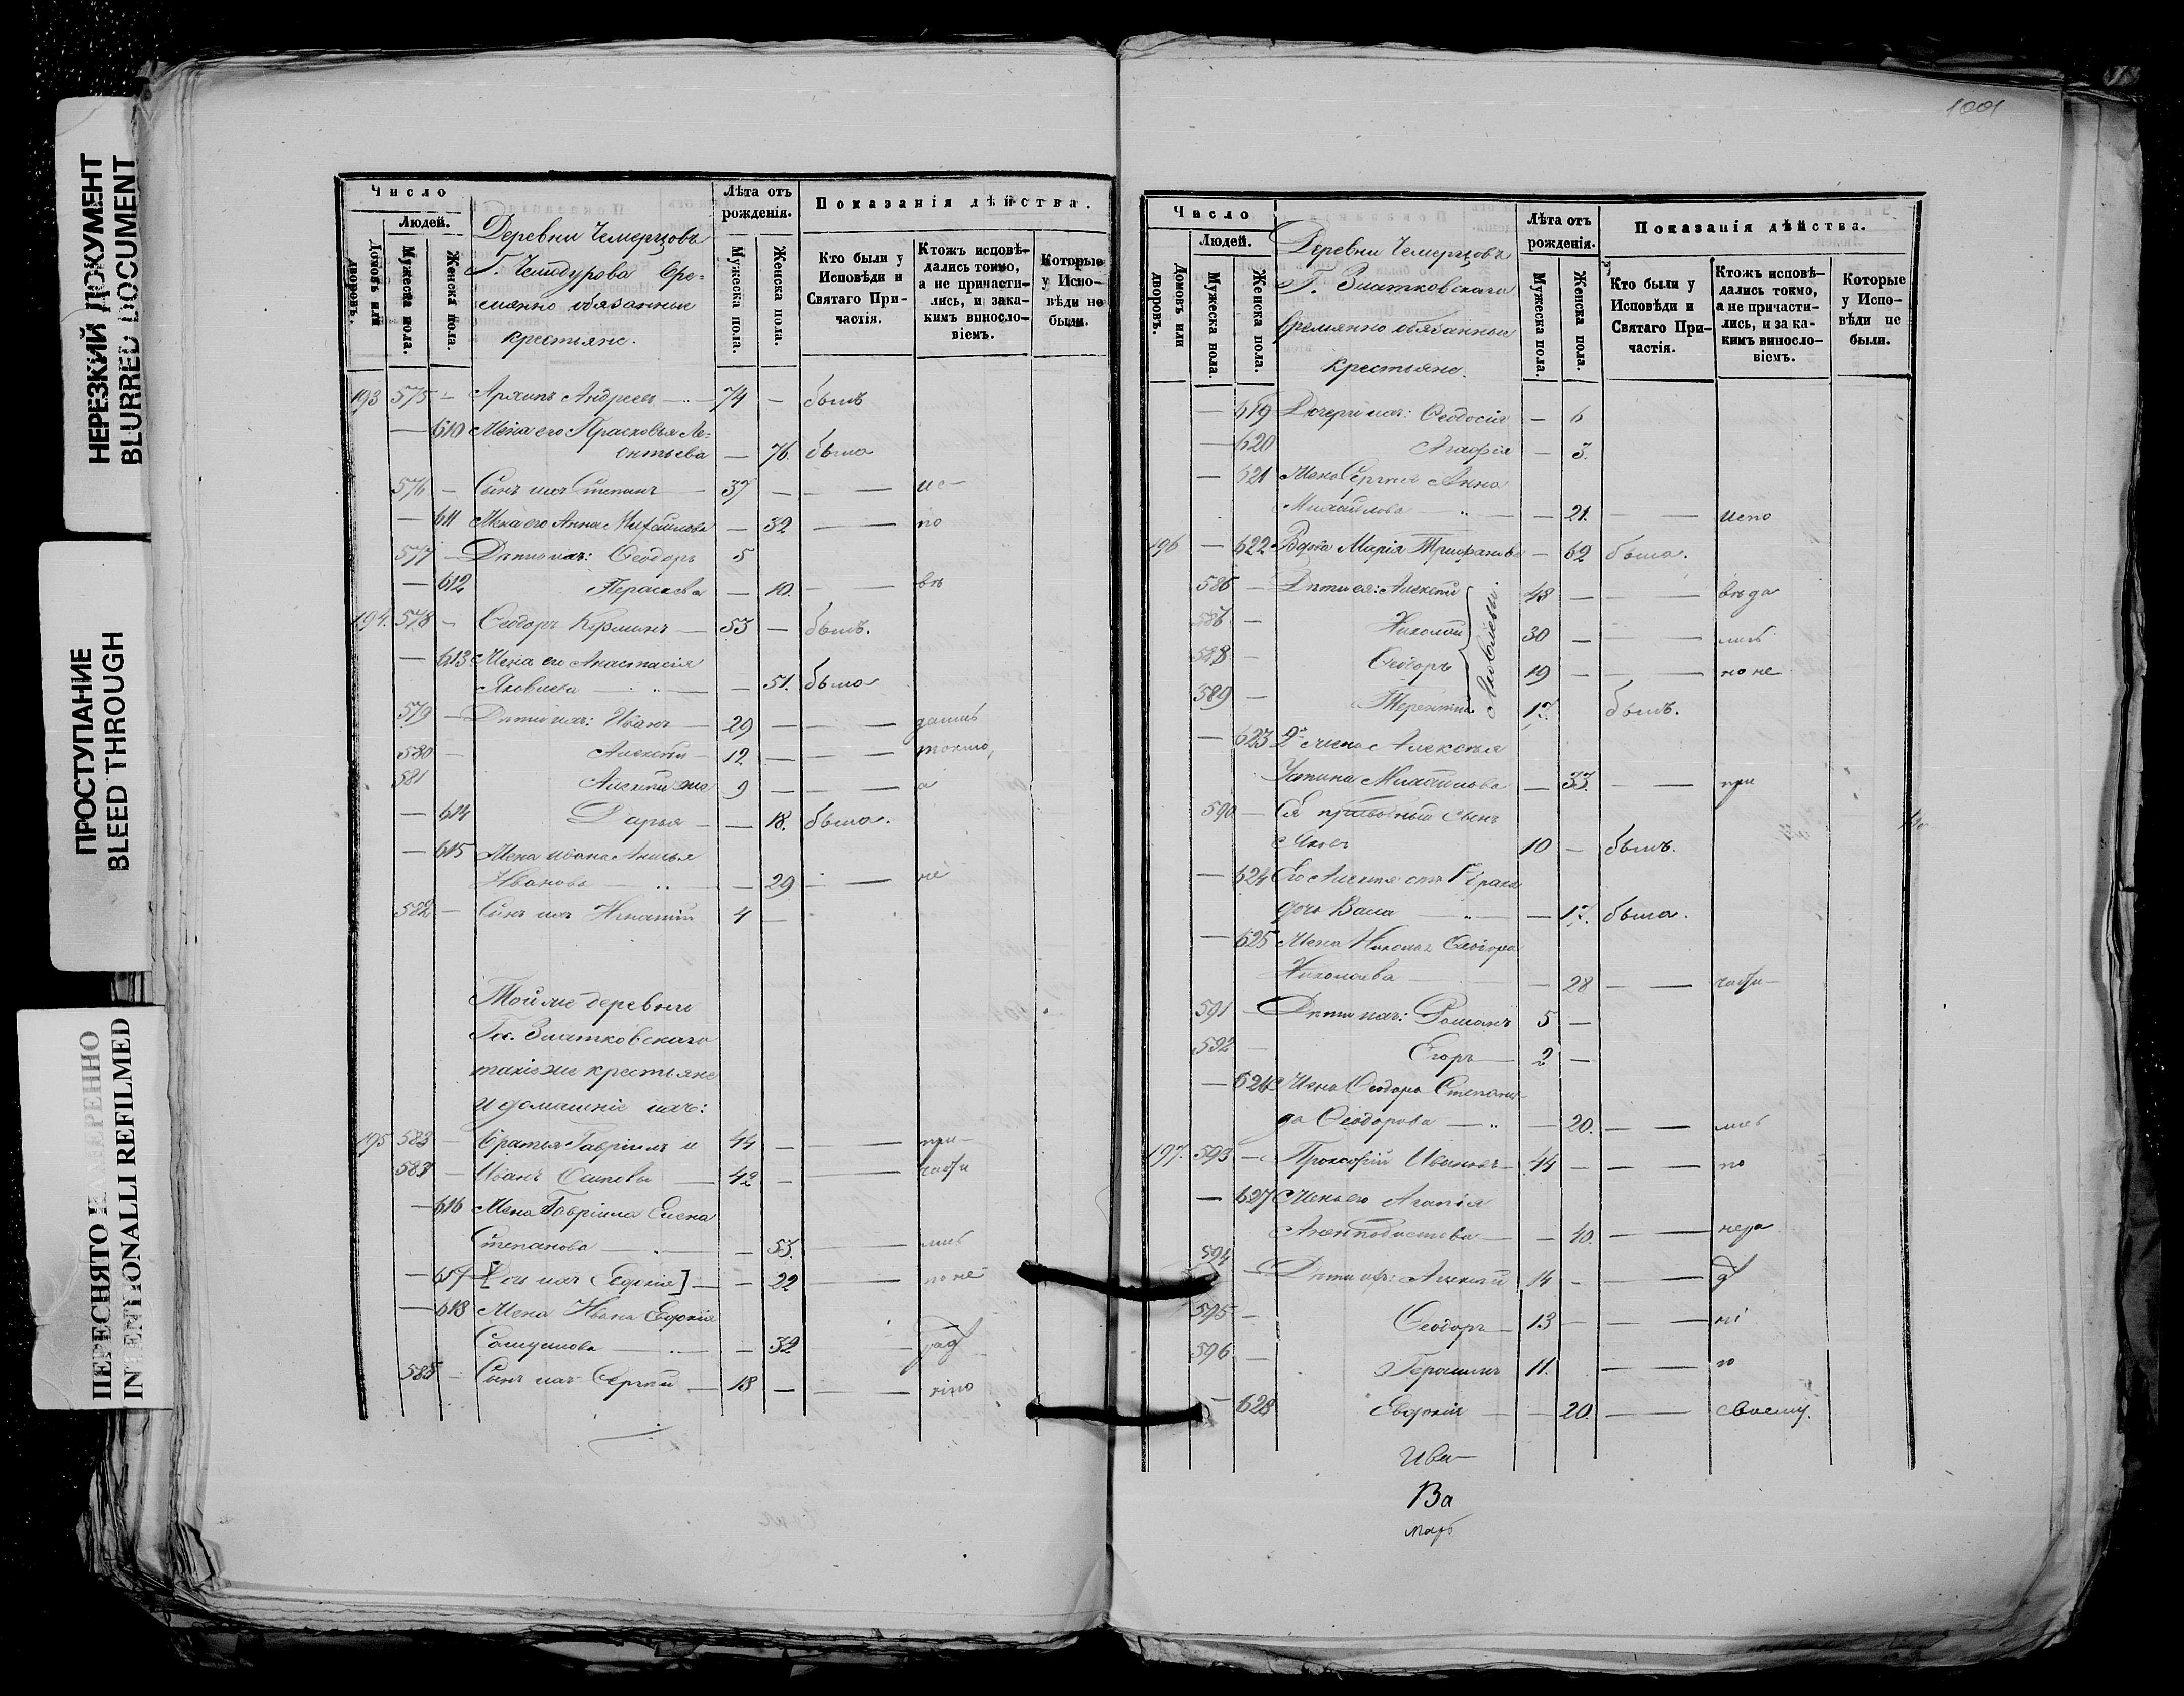 НЕРЕЗКИЙ ДОКУМЕНТ
BLURRED DOCUMENT
ПРОСТУПАНИЕ
BLEED THROUGH
ПЕРЕСНЯТО НАМЕРЕННО
INTENTIONALLI REFILMED
Число
Людей.
Домовъ или дворовъ.
Мужеска пола.
Женска пола.
Деревни Чемерцовъ
Г. Чемодурова Вре-
мянно обязанные
крестьяне.
Лѣта отъ рожденія.
Мужеска пола.
Женска пола.
Показанія дѣйства.
Кто были у Исповѣди и Святаго При-частія.
Ктожъ исповѣ-дались токмо, а не причасти-лись, и за ка-кимъ виносло-віемъ.
Которые у Испо-вѣди не были.
193 575 — Архипъ Андреевъ — 74 — былъ
— 610 Жена его Прасковья Ле-
онтьева — 76. была
576 — Сынъ ихъ Степанъ — 37 — — — ис-
— 611 Жена его Анна Михайлова — 32 — — по
577 — Дѣти ихъ: Ѳеодоръ 5
— 612 Параскева — 10. — — вѣ
194. 578 — Ѳеодоръ Карминъ — 53 — былъ.
— 613 Жена его Анастасія
Яковлева — — 51. была
579 — Дѣти ихъ: Иванъ 29 — — — дались
580 — Алексѣй — 12 — — — токмо,
581 Алексѣй же 9 — — — а
— 614 Дарья — — 18. была.
— 615 Жена Ивана Анисья
Иванова — — 29 — — не
582 — Сынъ ихъ Игнатій 4 —
Той же деревни
Гг. Златковскаго
такіе же крестьяне
и домашніе ихъ:
195 583 — Братья Гавріилъ и 44 — — при-
584 — Иванъ Осиповы — 42 — — части
— 616 Жена Гавріила Елена
Степанова — — 53. — лись
— 617 [Дочь ихъ Евдокія] — — 22 — по не
— 618 Жена Ивана Евдокія
— 32 — рад
585 — Сынъ ихъ Сергѣй — 18 — — — ніпо
1001
Число
Людей.
Домовъ или дворовъ.
Мужеска пола.
Женска пола.
Деревни Чемерцовъ
Г. Златковскаго
Времянно обязанные
крестьяне.
Лѣта отъ рожденія.
Мужеска пола.
Женска пола.
Показанія дѣйства.
Кто были у Исповѣди и Святаго При-частія.
Ктожъ исповѣ-дались токмо, а не причасти-лись, и за ка-кимъ виносло-віемъ.
Которые у Испо-вѣди не были.
— 619 Дочери ихъ: Ѳеодосія — 6
— 620 Агафія — 3.
— 621 Жена Сергѣя Анна
Михайлова — — 21. — — испо
196 — 622 Вдова Марія Трифанова — 62 была.
586 — Дѣти ея: Алексѣй 48 — — вѣда
587 — Николай 30 — — лись
588 — Ѳеодоръ 19 — — но не
589 — Терентій 17. былъ.
Яковлевы.
— 623 2я жена Алексѣя
Устина Михайлова — 33. — — при
590 — Ея сынъ
Яковъ 10 — былъ.
— 624 Его Алексѣя отъ 1го брака
дочь Васса — — 17. была.
— 625 Жена Николая Ѳеодора
Николаева — — 28 — — части-
591 — Дѣти ихъ: Романъ 5 —
592 Егоръ — 2 —
— 626 Жена Ѳеодора Степани-
да Ѳеодорова — — 20. — — лись
197. 593 — Прокофій Ивановъ 44 — — — по
— 627 Жена его Агапія
— — 40. — — нера
594 — Дѣти ихъ: Алексѣй 14 — — д
595 — Ѳеодоръ — 13 — — ні
596 — Герасимъ 11. — — ю
— 628 Евдокія — — 20. — — своему.
Ива-
Ва
Марѳ